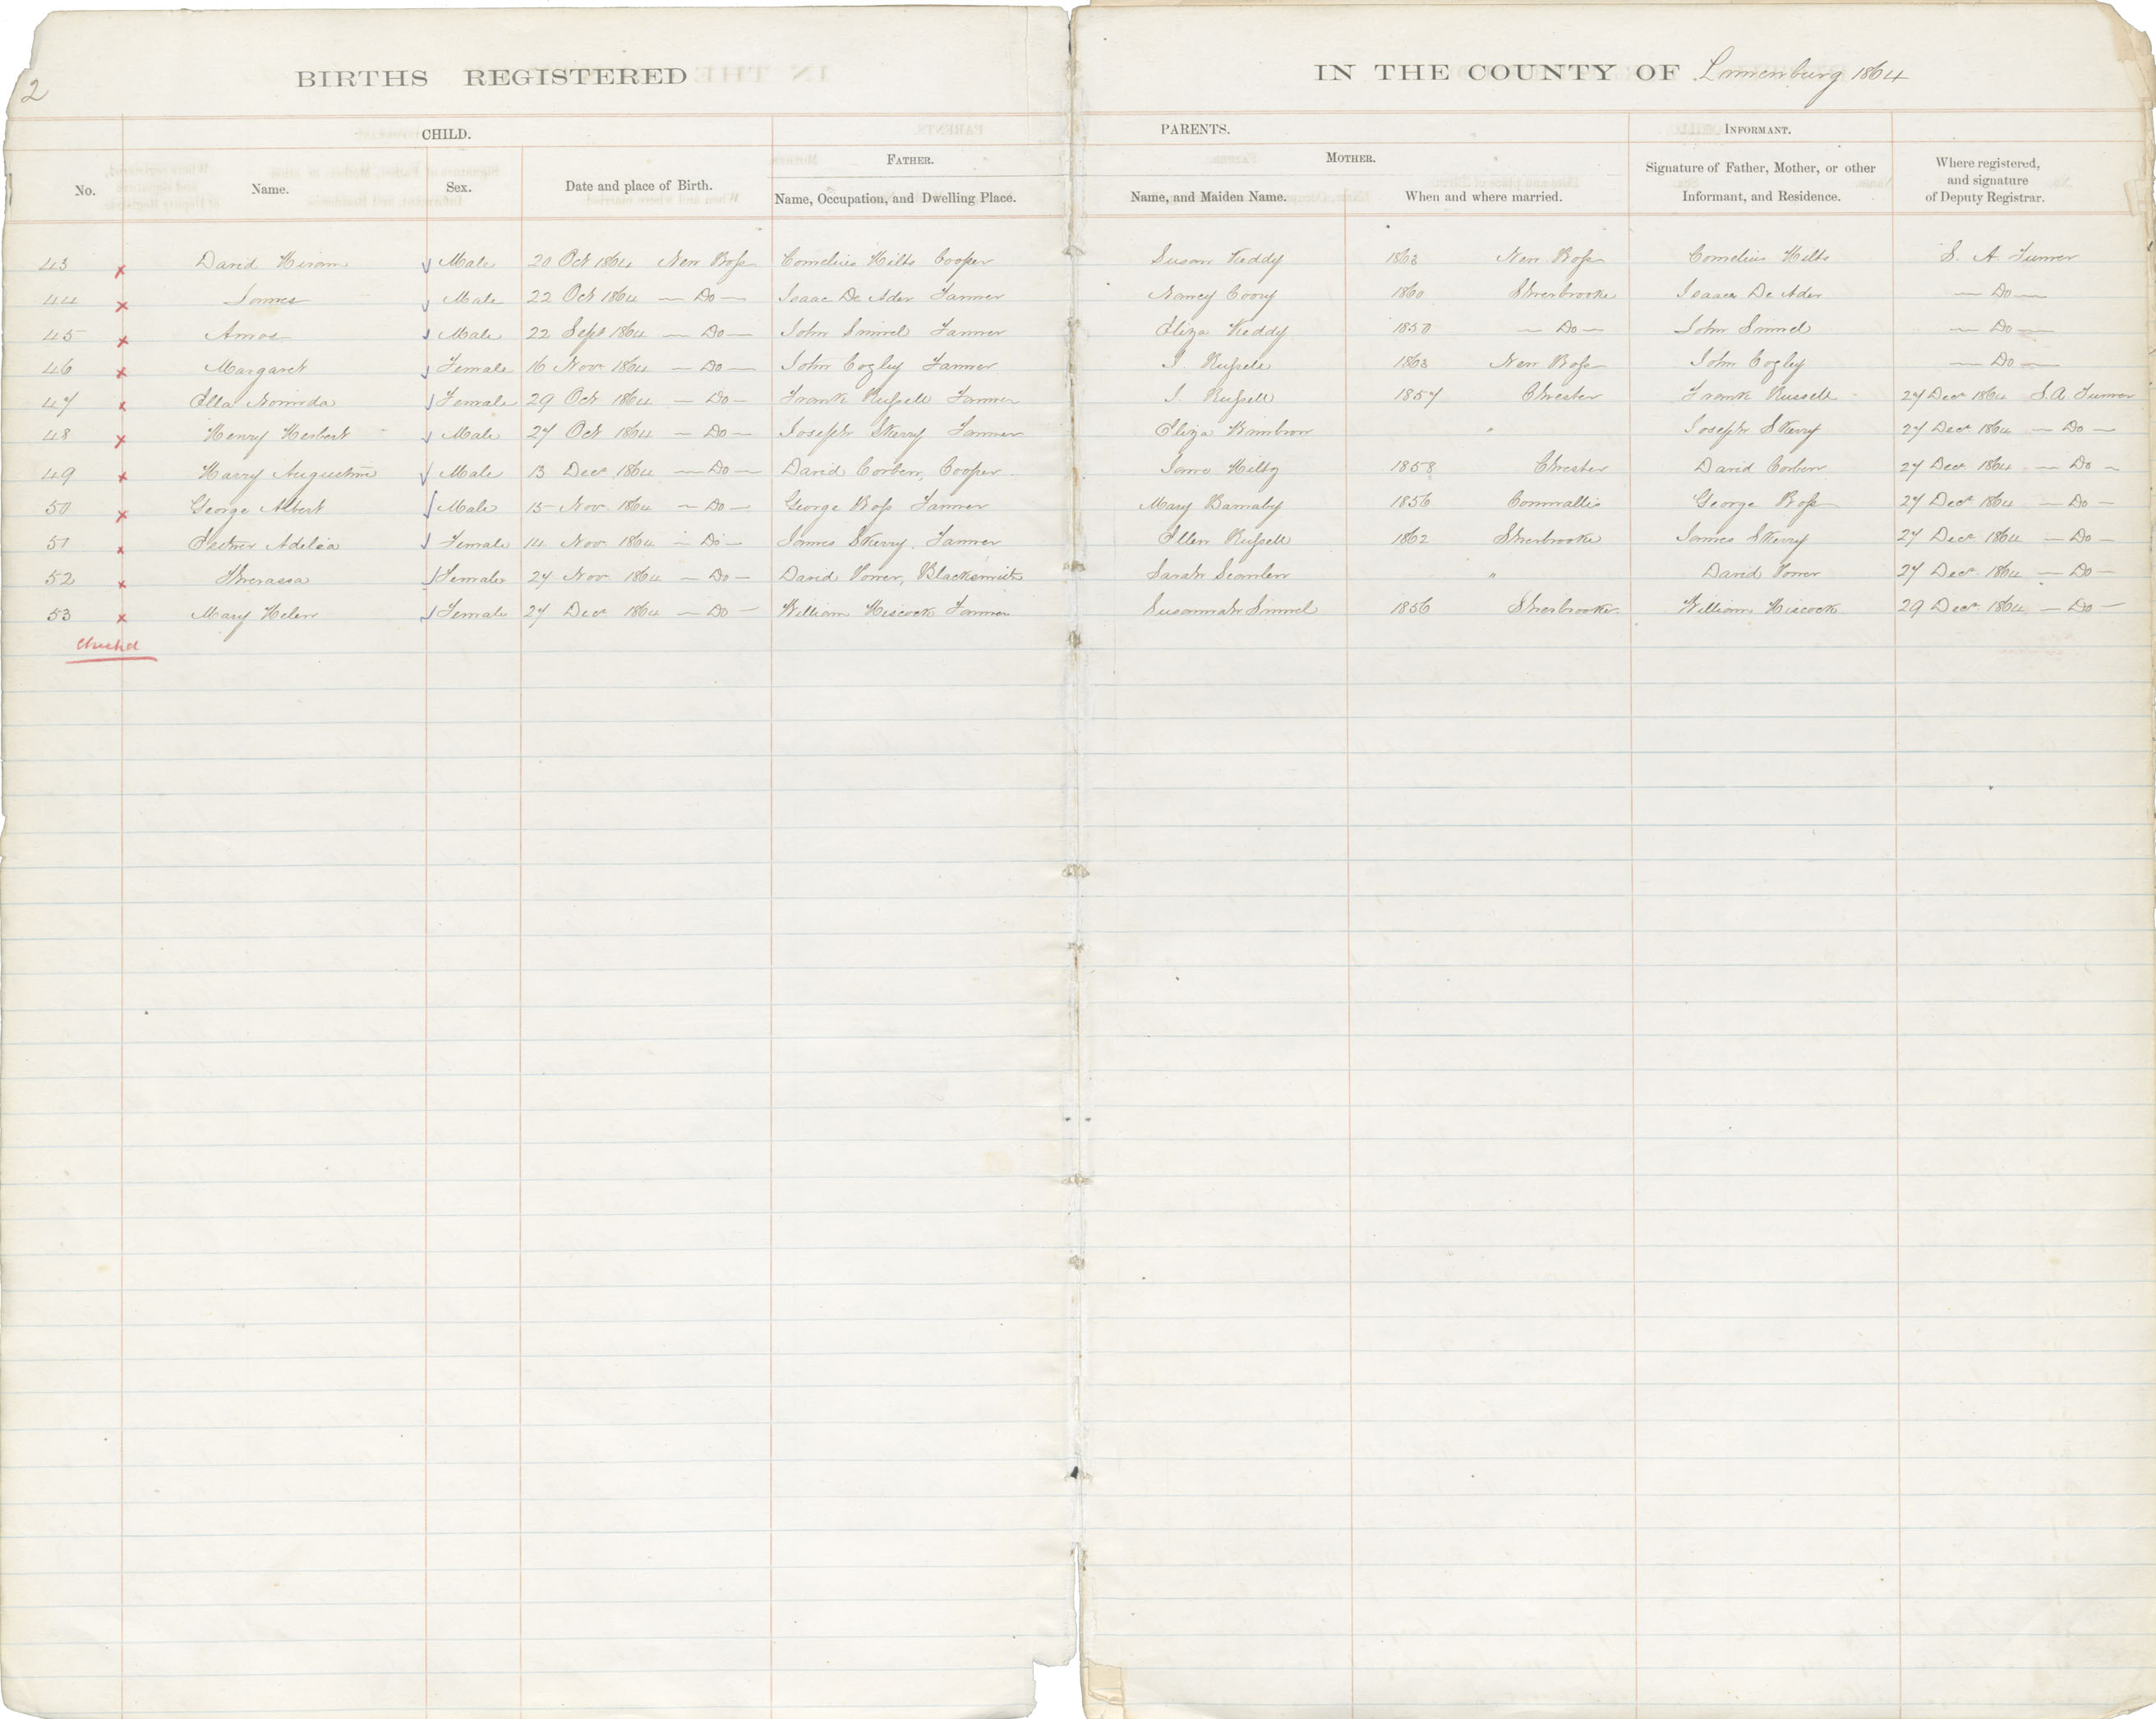 2
BIRTHS REGISTERED IN THE COUNTY OF Lunenburg 1864
CHILD. PARENTS. INFORMANT.
No. Name. Sex. Date and place of Birth. FATHER. Name, Occupation, and Dwelling Place. MOTHER. Name, and Maiden Name. When and where married. Signature of Father, Mother, or other Informant, and Residence. Where registered, and signature of Deputy Registrar.
43 x David Hiram Male 20 Oct 1864 New Ross Cornelius Hilts Cooper Susan Keddy 1863 New Ross Cornelius Hilts S. A. Turner
44 x James Male 22 Oct 1864 — Do — Isaac De Ader Farmer Nancy Corry 1860 Sherbrooke Isaac De Ader — Do —
45 x Amos Male 22 Sept 1864 — Do — John Simmel Farmer Eliza Keddy 1850 — Do — John Simmel — Do —
46 x Margaret Female 16 Nov 1864 — Do — John Cogley Farmer Russell 1863 New Ross John Cogley — Do —
47 x Ella Female 29 Oct 1864 — Do — Frank Russell Farmer Russell 1857 Chester Frank Russell 27 Decr 1864 S. A. Turner
48 x Henry Herbert Male 27 Oct 1864 — Do — Joseph Skerry Farmer Eliza " Joseph Skerry 27 Decr 1864 — Do —
49 x Harry Augustine Male 13 Decr 1864 — Do — David Corben, Cooper Jane Hiltz 1858 Chester David Corben 27 Decr 1864 — Do —
50 x George Albert Male 15 Nov 1864 — Do — George Ross Farmer Mary Barnaby 1856 Cornwallis George Ross 27 Decr 1864 — Do —
51 x Esther Adelia Female 14 Nov 1864 — Do — James Skerry. Farmer Ellen Russell 1862 Sherbrooke James Skerry 27 Decr 1864 — Do —
52 x Therassa Female 27 Nov 1864 — Do — David Power, Blacksmith Sarah Scanlen " David Power 27 Decr 1864 — Do —
53 x Mary Helen Female 27 Decr 1864 — Do — William Hiscock Farmer Susannah Simmel 1856 Sherbrooke William Hiscock 29 Decr 1864 — Do —
Checked